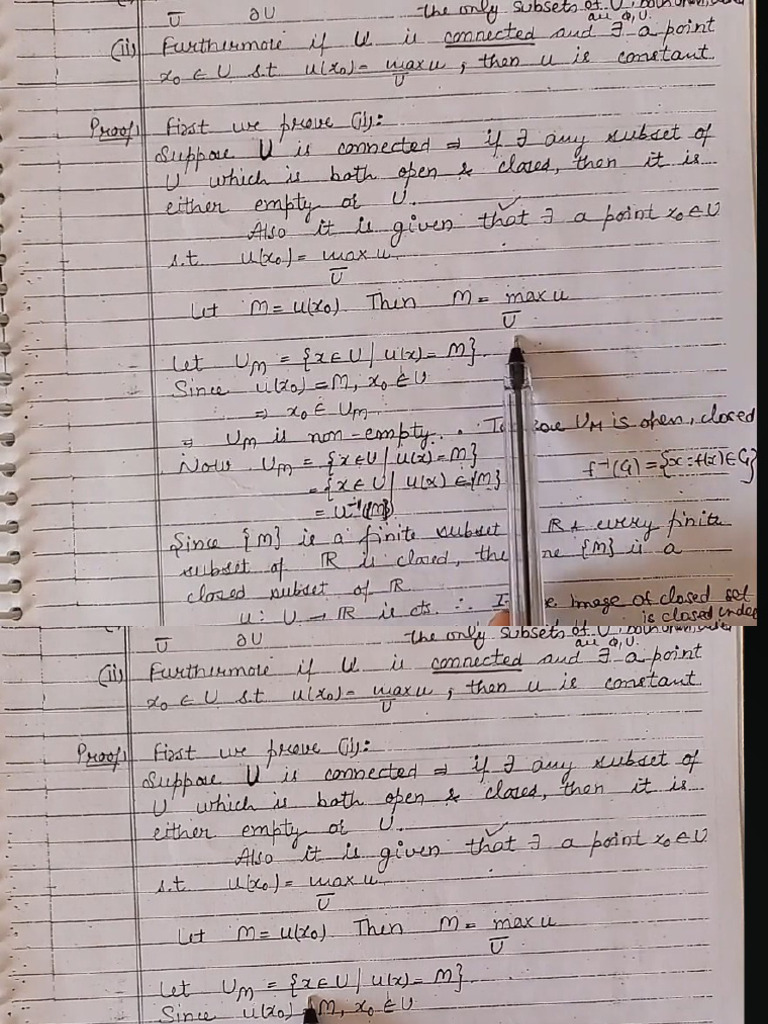 U̅ ∂U the only subsets of U, both open,
are Φ, U.
(ii) Furthermore if U is connected and ∃ a point
x₀ ∈ U s.t u(x₀) = max u, then u is constant
U̅
Proof) First we prove (ii):
Suppose U is connected ⇒ if ∃ any subset of
U which is both open & closes, then it is
either empty or U.
Also it is given that ∃ a point x₀ ∈ U
s.t u(x₀) = max u.
U̅
Let M = u(x₀) Then M = max u
U̅
Let U_M = {x ∈ U | u(x) = M}.
Since u(x₀) = M, x₀ ∈ U
⇒ x₀ ∈ U_M
⇒ U_M is non-empty. U_M is open, closed
Now U_M = {x ∈ U | u(x) = M} f⁻¹(G) = {x : f(x) ∈ G}
= {x ∈ U | u(x) ∈ {M}
= u⁻¹({M})
Since {M} is a finite subset R & every finite
subset of R is closed, the {M} is a
closed subset of R
u : U → R is cts. ∴ image of closed set
is closed under
U̅ ∂U the only subsets of U,
are Φ, U.
(ii) Furthermore if U is connected and ∃ a point
x₀ ∈ U s.t u(x₀) = max u, then u is constant
U̅
Proof) First we prove (ii):
Suppose U is connected ⇒ if ∃ any subset of
U which is both open & closes, then it is
either empty or U.
Also it is given that ∃ a point x₀ ∈ U
s.t u(x₀) = max u.
U̅
Let M = u(x₀) Then M = max u
U̅
Let U_M = {x ∈ U | u(x) = M}
Since u(x₀) = M, x₀ ∈ U